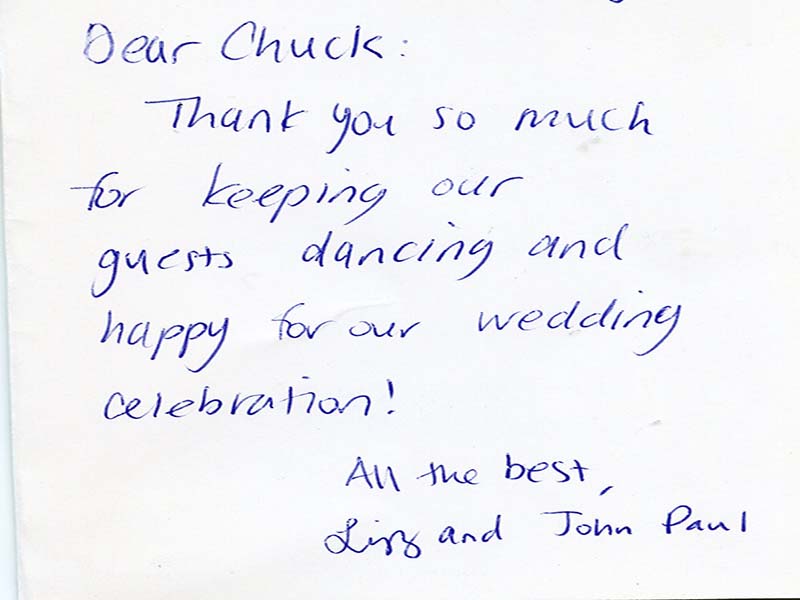 Dear Chuck:
Thank you so much
for keeping our
guests dancing and
happy for our wedding
celebration!
All the best,
Lizz and John Paul